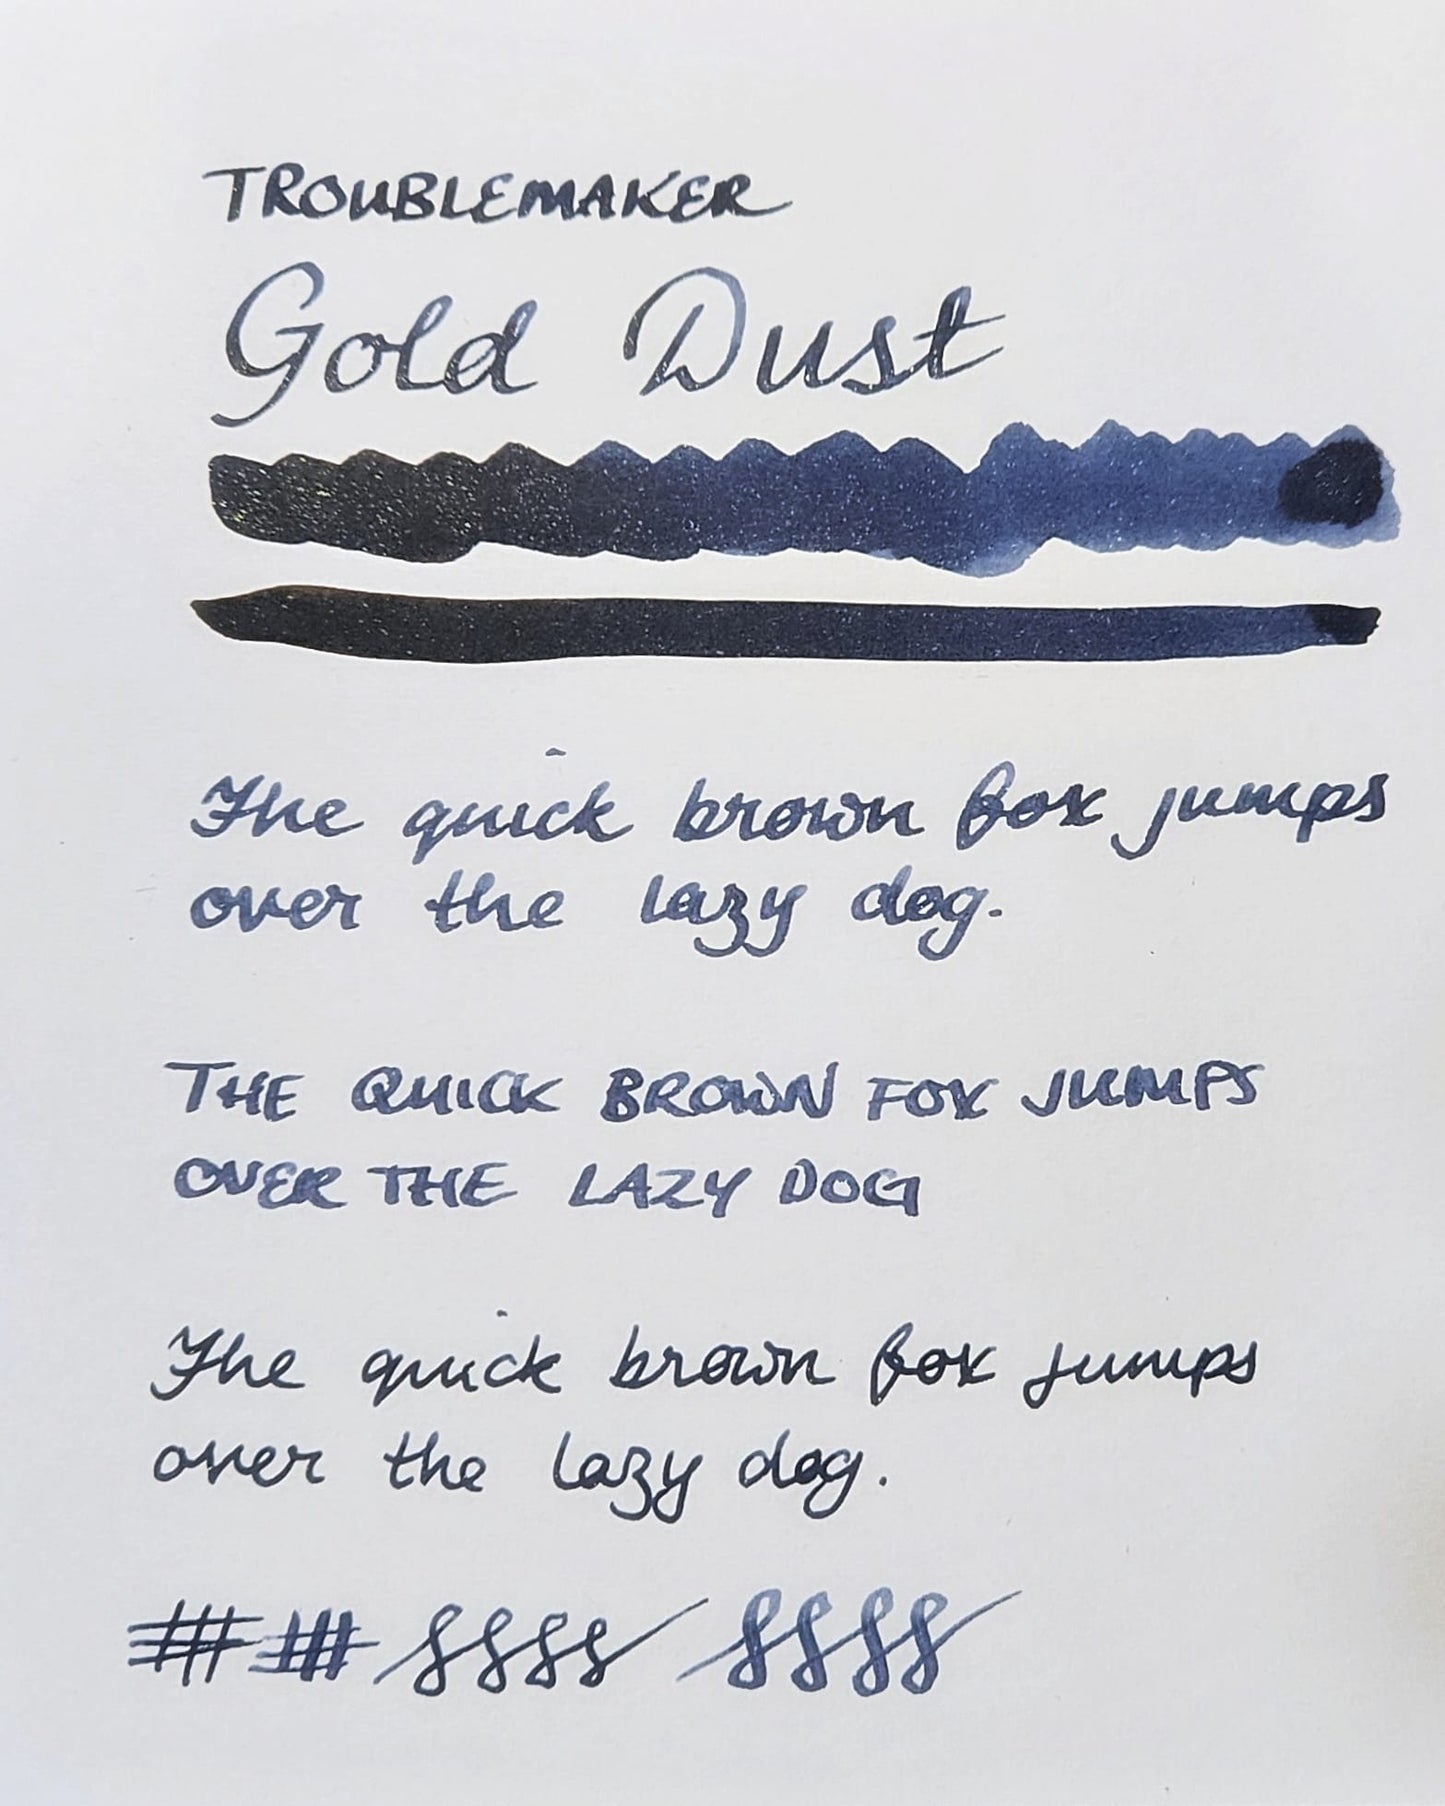 TROUBLEMAKER
Gold Dust
The quick brown fox jumps
over the lazy dog.
THE QUICK BROWN FOX JUMPS
OVER THE LAZY DOG
The quick brown fox jumps
over the lazy dog.